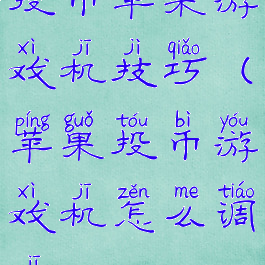 投币苹果游
xì jī jì qiǎo
戏机技巧（
píng guǒ tóu bì yóu
苹果投币游
xì jī zěn me tiáo
戏机怎么调
jī